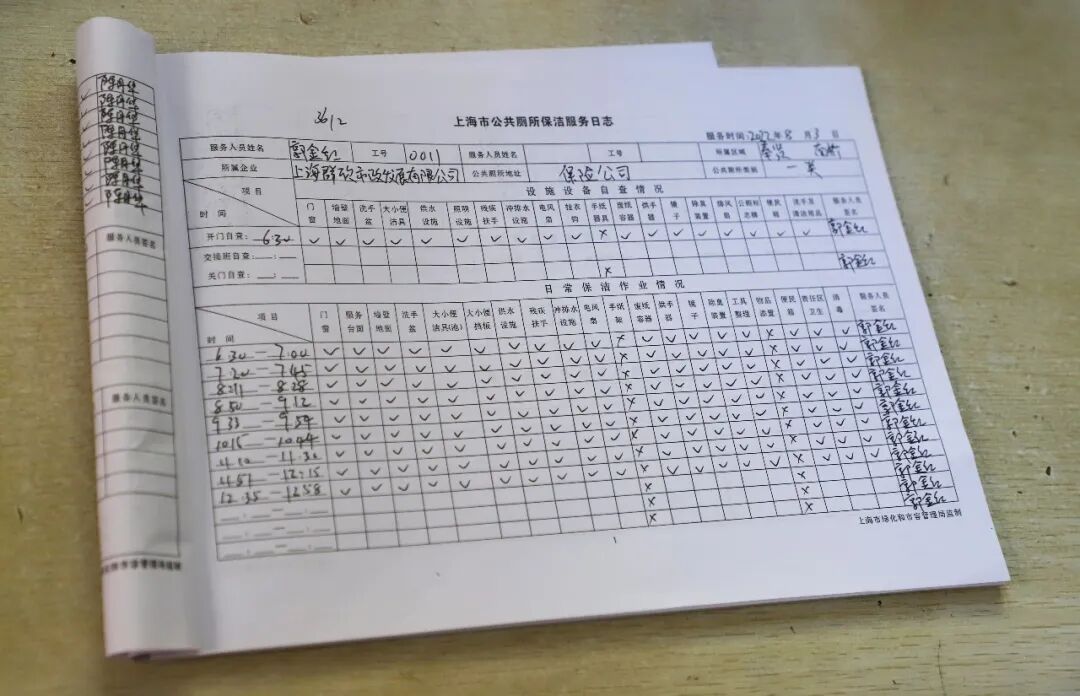 3612
上海市公共厕所保洁服务日志
服务时间:2022年8月3日
服务人员姓名 郭金红 工号 0011 服务人员姓名 工号 所属区域 奉贤 南桥
所属企业 上海群欣市政发展有限公司 公共厕所地址 保险公司 公共厕所类别 一类
项目 设施设备自查情况
时间 门窗 墙壁地面 洗手盆 大小便洁具 供水设施 照明设施 残疾扶手 冲排水设施 电风扇 挂衣钩 手纸器具 废纸容器 烘手器 镜子 除臭装置 排风扇 公厕标志牌 便民箱 服务人员签名
开门自查:6:30 ✓ ✓ ✓ ✓ ✓ ✓ ✓ ✓ ✓ ✓ × ✓ ✓ ✓ ✓ ✓ ✓ ✓ ✓ 郭金红
交接班自查:
关门自查: × 郭金红
日常保洁作业情况
项目
时间 门窗 服务台面 墙壁地面 洗手盆 大小便洁具(池) 大小便挡板 供水设施 残疾扶手 冲排水设施 电风扇 手纸架 废纸容器 烘手器 镜子 除臭装置 工具整理 物品添置 便民箱 责任区卫生 消毒 服务人员签名
6:30—7:00 郭金红
7:20—7:45 郭金红
8:11—8:28 郭金红
8:50—9:12 郭金红
9:33—9:54 郭金红
10:15—10:44 郭金红
郭金红
郭金红
12:35—12:58 郭金红
上海市绿化和市容管理局监制
1
陈丹华
陈丹华
陈丹华
陈丹华
陈丹华
陈丹华
陈丹华
陈丹华
服务人员签名
服务人员签名